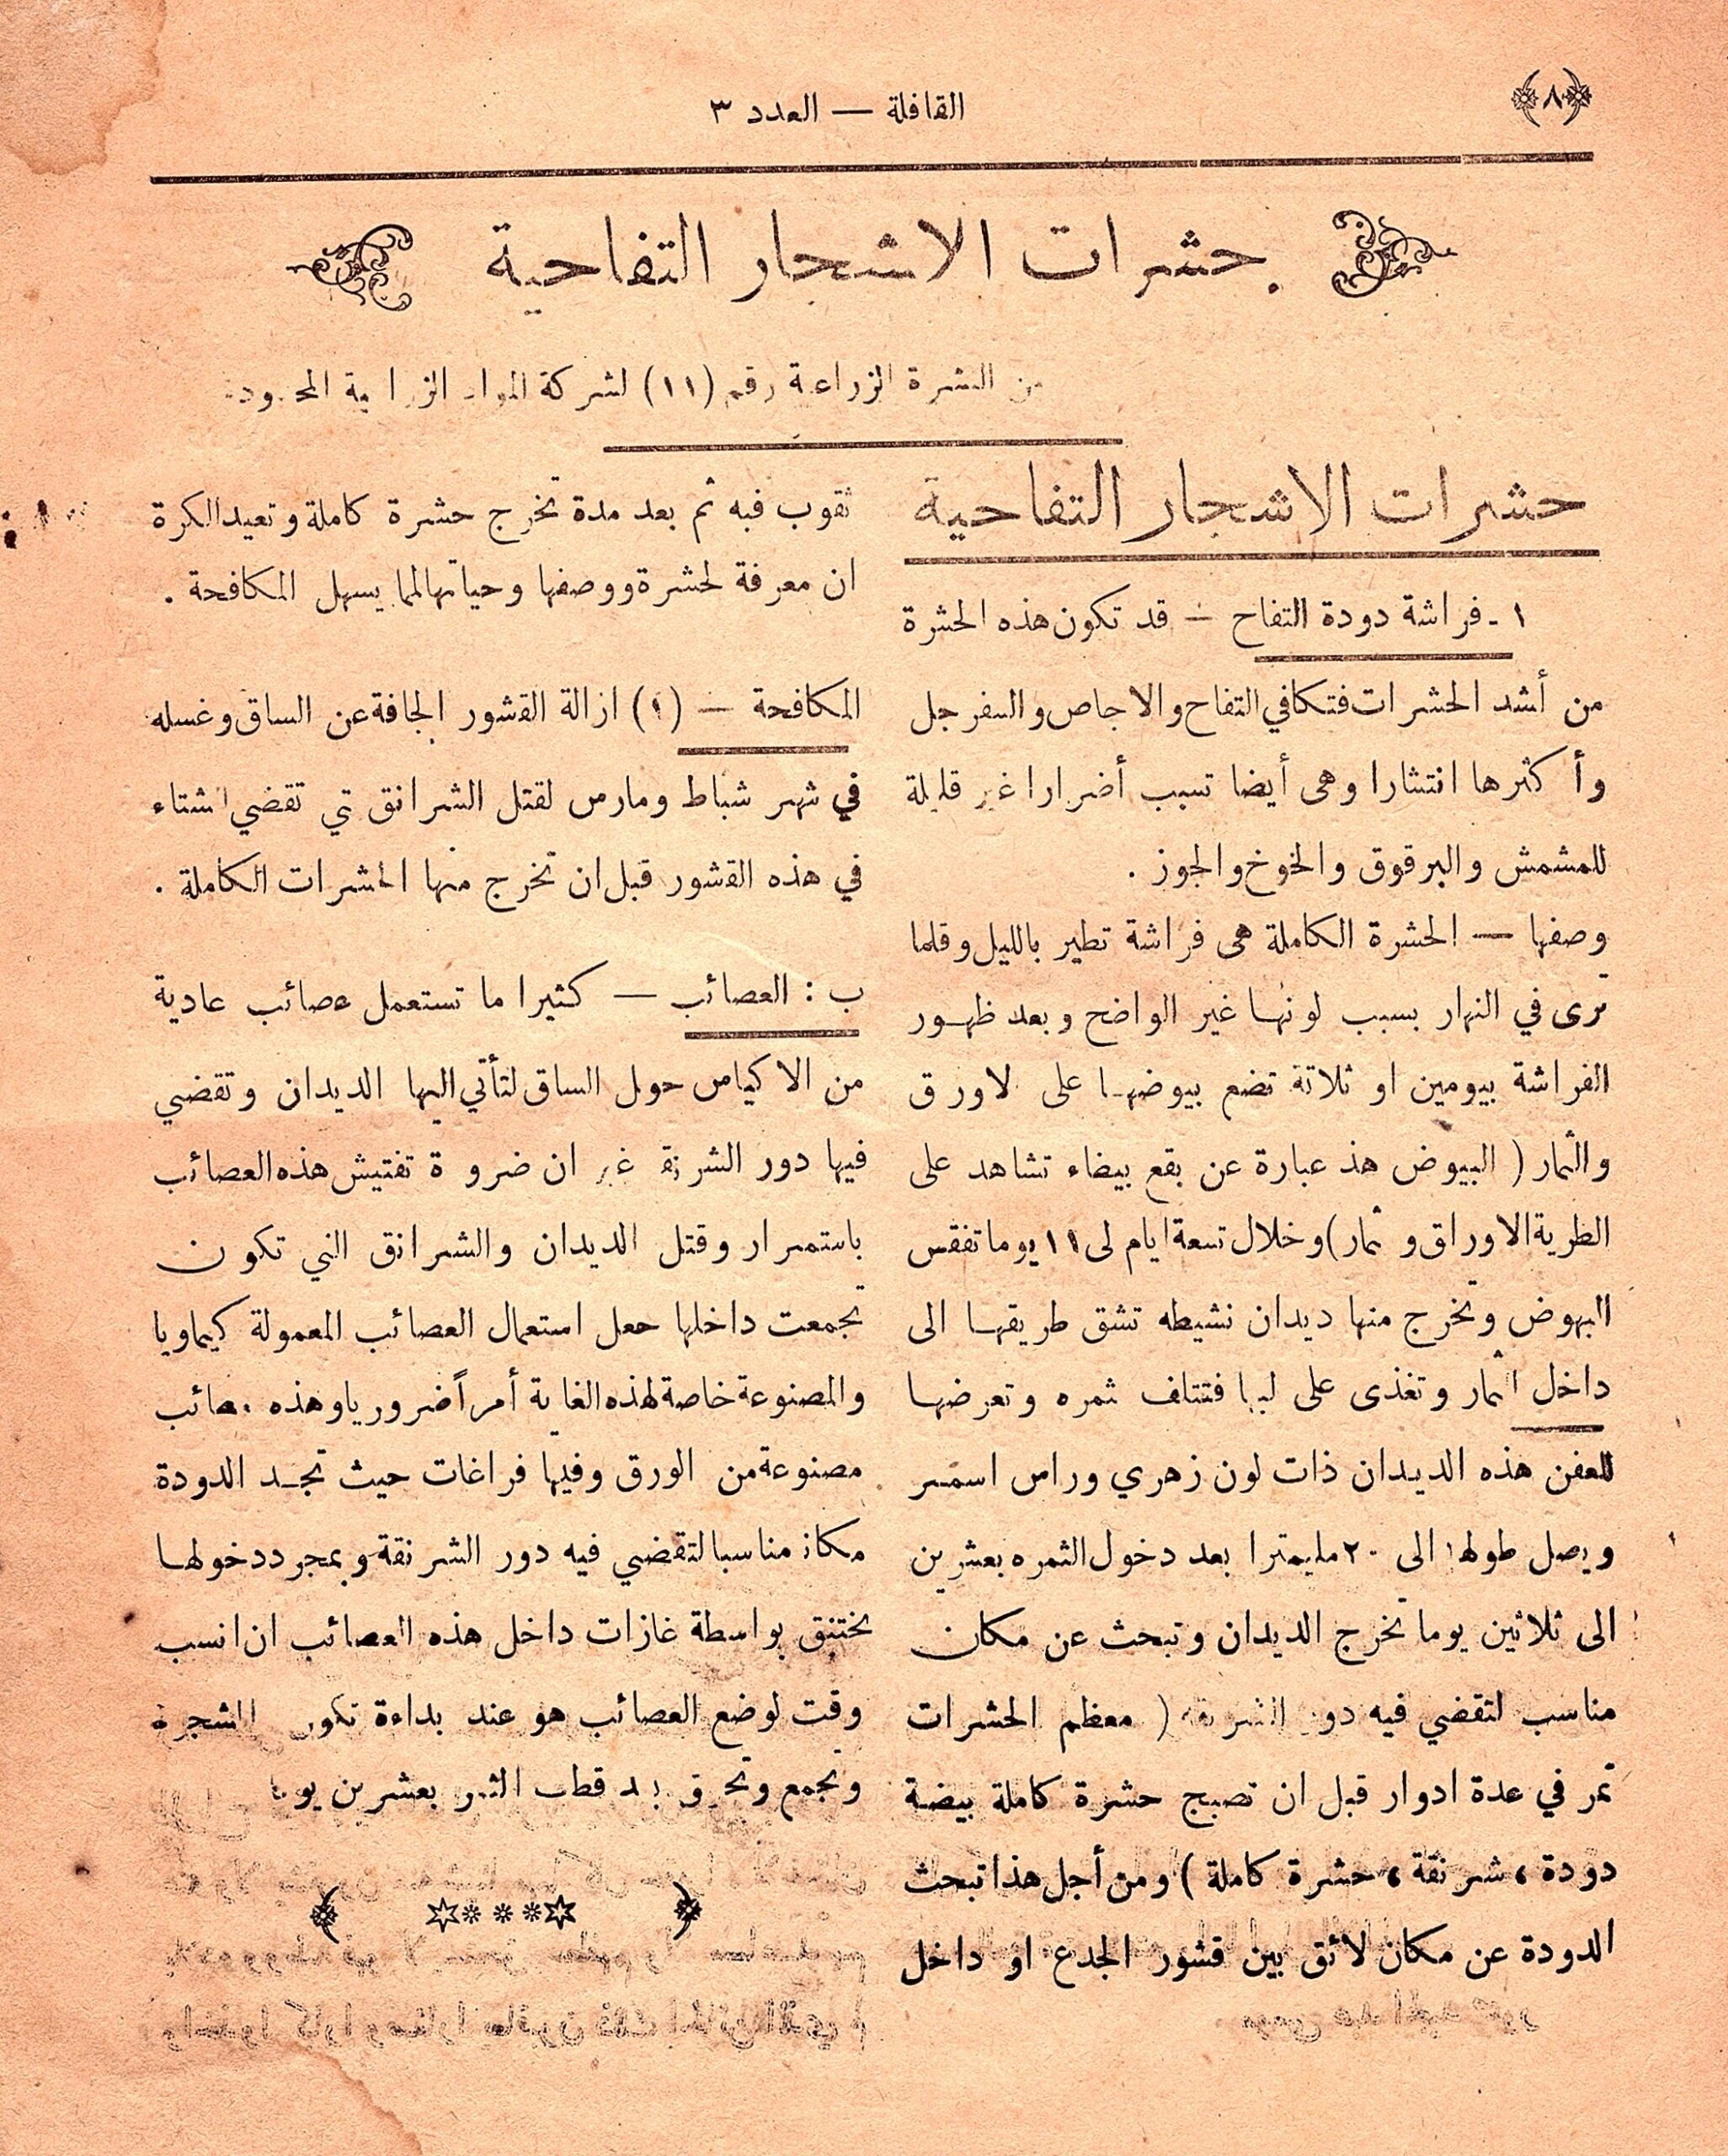 ﴿٨﴾
القافلة — العدد ٣
حشرات الاشجار التفاحية
من النشرة الزراعة رقم (١١) لشركة المواد
حشرات الاشجار التفاحية
١ - فراشة دودة التفاح — قد تكون هذه الحشرة
من أشد الحشرات فتكا في التفاح والاجاص والسفرجل
وأكثرها انتشارا وهى أيضا تسبب أضرارا غير قليلة
للمشمش والبرقوق والخوخ والجوز .
وصفها — الحشرة الكاملة هى فراشة تطير بالليل وقلما
ترى في النهار بسبب لونها غير الواضح وبعد ظهور
الفراشة بيومين او ثلاتة تضع بيوضها على لاورق
والثمار ( البيوض هذ عبارة عن بقع بيضاء تشاهد على
الطرية الاوراق و ثمار) وخلال تسعة ايام لى ١١ يوما تفقس
البهوض وتخرج منها ديدان نشيطه تشق طريقها الى
داخل اثمار وتغذى على لبها فتتلف ثمره وتعرضها
للعفن هذه الديدان ذات لون زهري وراس اسمر
ويصل طولها الى ٢٠ مليمترا بعد دخول الثمره بعشرين
الى ثلاثين يوما تخرج الديدان وتبحث عن مكان
مناسب لتقضي فيه دور الشرنقه ( معظم الحشرات
تمر في عدة ادوار قبل ان تصبح حشرة كاملة بيضة
دودة ، شرنقة ، حشرة كاملة ) ومن أجل هذا تبحث
الدودة عن مكان لائق بين قشور الجدع او داخل
ثقوب فيه ثم بعد مدة تخرج حشرة كاملة وتعيد الكرة
ان معرفة لحشرة ووصفها وحياتها لمما يسهل المكافحة .
المكافحة — (١) ازالة القشور الجافة عن الساق وغسله
في شهر شباط ومارس لقتل الشرانق تي تقضي اشتاء
في هذه القشور قبل ان تخرج منها الحشرات الكاملة .
ب : العصائب — كثيرا ما تستعمل عصائب عادية
من الاكياس حول الساق لتأتي اليها الديدان وتقضي
فيها دور الشرنقة غير ان ضرو ة تفتيش هذه العصائب
باستمرار وقتل الديدان والشرانق التي تكون
تجمعت داخلها جعل استعمال العصائب المعمولة كيماويا
والمصنوعة خاصة لهذه الغاية أمراً ضروريا وهذه عصائب
مصنوعة من الورق وفيها فراغات حيث تجد الدودة
مكانا مناسبا لتقضي فيه دور الشرنقة وبمجرد دخولها
تختنق بواسطة غازات داخل هذه العصائب ان انسب
وقت لوضع العصائب هو عند بداءة تكور الشجرة
وتجمع وتحرق بعد قطف الثمر بعشرين يوما